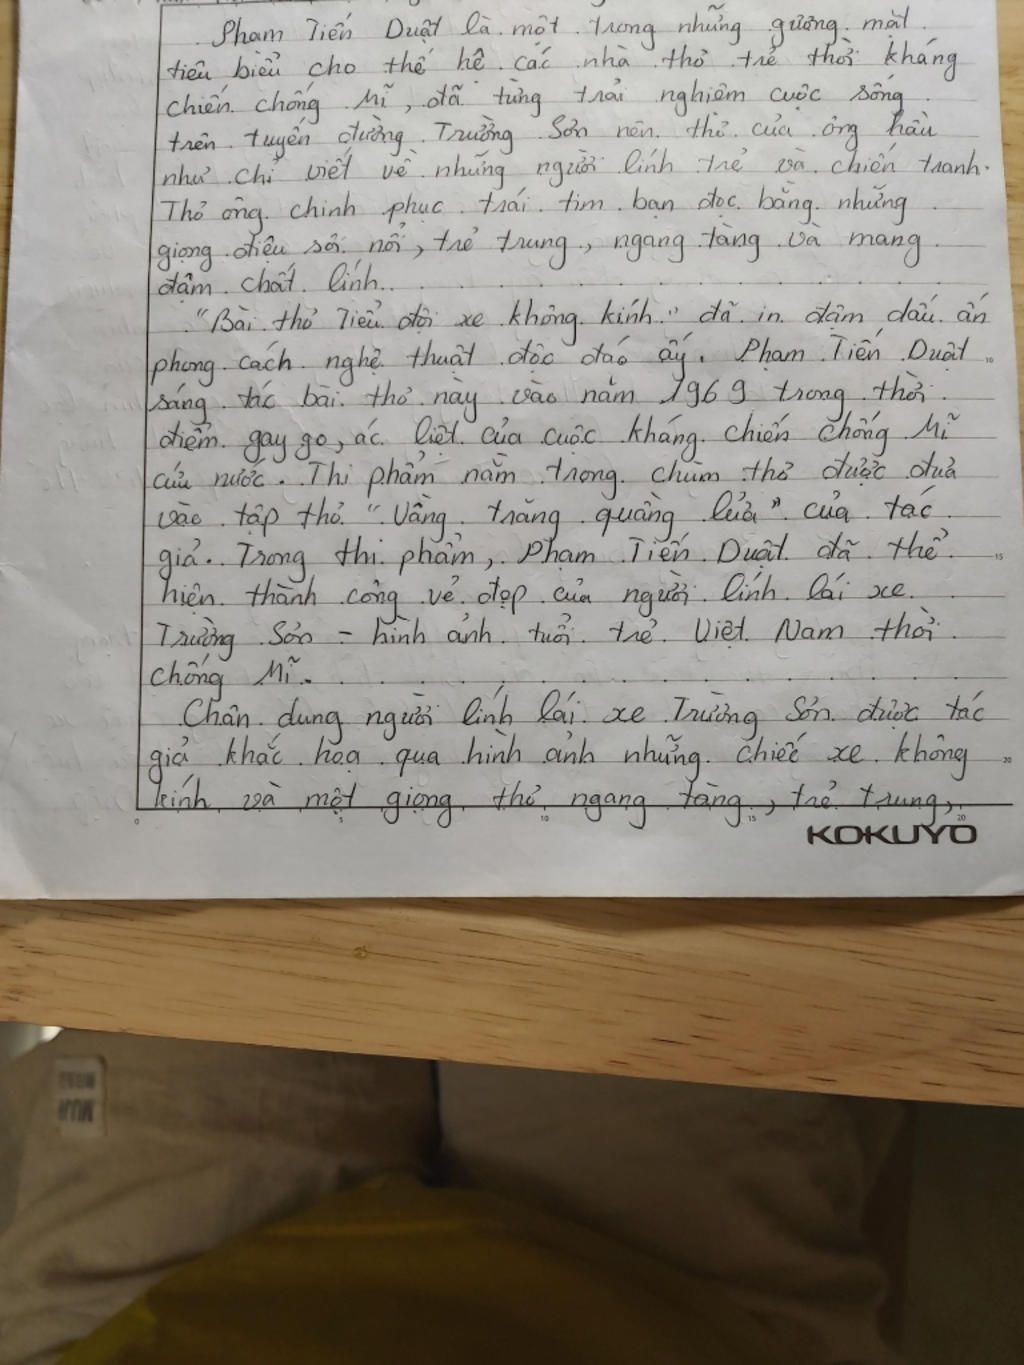 Phạm Tiến Duật là một trong những gương mặt
tiêu biểu cho thế hệ các nhà thơ trẻ thời kháng
chiến chống Mĩ, đã từng trải nghiệm cuộc sống
trên tuyến đường Trường Sơn nên thơ của ông hầu
như chỉ viết về những người lính trẻ và chiến tranh.
Thơ ông chinh phục trái tim bạn đọc bằng những
giọng điệu sôi nổi, trẻ trung, ngang tàng và mang
đậm chất lính.
"Bài thơ Tiểu đội xe không kính" đã in đậm dấu ấn
phong cách nghệ thuật độc đáo ấy. Phạm Tiến Duật
sáng tác bài thơ này vào năm 1969 trong thời
điểm gay go, ác liệt của cuộc kháng chiến chống Mĩ
cứu nước. Thi phẩm nằm trong chùm thơ được đưa
vào tập thơ "Vầng trăng quầng lửa" của tác
giả. Trong thi phẩm, Phạm Tiến Duật đã thể
hiện thành công vẻ đẹp của người lính lái xe
Trường Sơn - hình ảnh tuổi trẻ Việt Nam thời
chống Mĩ.
Chân dung người lính lái xe Trường Sơn được tác
giả khắc hoạ qua hình ảnh những chiếc xe không
kính và một giọng thơ ngang tàng, trẻ trung,
0 5 10 15 20
KOKUYO